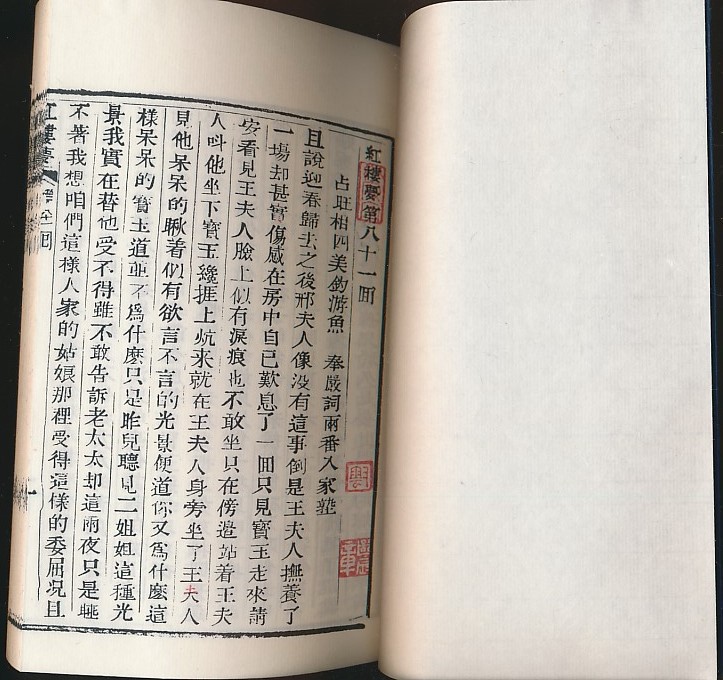 紅樓夢第八十一回
占旺相四美釣游魚　奉嚴詞兩番入家塾
且說迎春歸去之後邢夫人像沒有這事倒是王夫人撫養了
一場却甚實傷感在房中自己歎息了一回只見寳玉走來請
安看見王夫人臉上似有淚痕也不敢坐只在傍邉站着王夫
人呌他坐下寳玉纔捱上炕来就在王夫人身旁坐了王夫人
見他呆呆的瞅着似有欲言不言的光景便道你又爲什麽這
樣呆呆的寳玉道並不爲什麽只是昨兒聽見二姐姐這種光
景我實在替他受不得雖不敢告訴老太太却這兩夜只是睡
不著我想咱們這樣人家的姑娘那裡受得這樣的委屈况且
紅樓夢　第八十一回　一